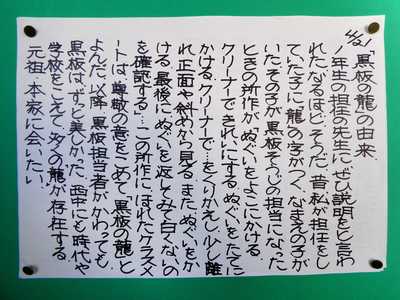 「黒板の龍」の由来
1年生の担任の先生に、ぜひ説明をと言わ
れた。なるほど、そうだ。昔、私が担任をし
ていた子に「龍」の字がつくなまえの子が
いた。その子が黒板そうじの担当になった
ときの所作が、「ぬぐいをよこにかける。
クリーナーできれいにする。ぬぐいをたてに
かける。クリーナーで…をくりかえし、少し離
れ正面や斜めから見る。また、ぬぐいをか
ける。最後に、ぬぐいを返してみて白くないの
を確認する」…この所作にほれたクラスメ
ートは、尊敬の意をこめて「黒板の龍」と
よんだ。以降、黒板担当者がかわっても、
黒板はずっと美しかった。西中にも時代や
学校をこえて、多くの龍が存在する。
元祖・本家に会いたい!